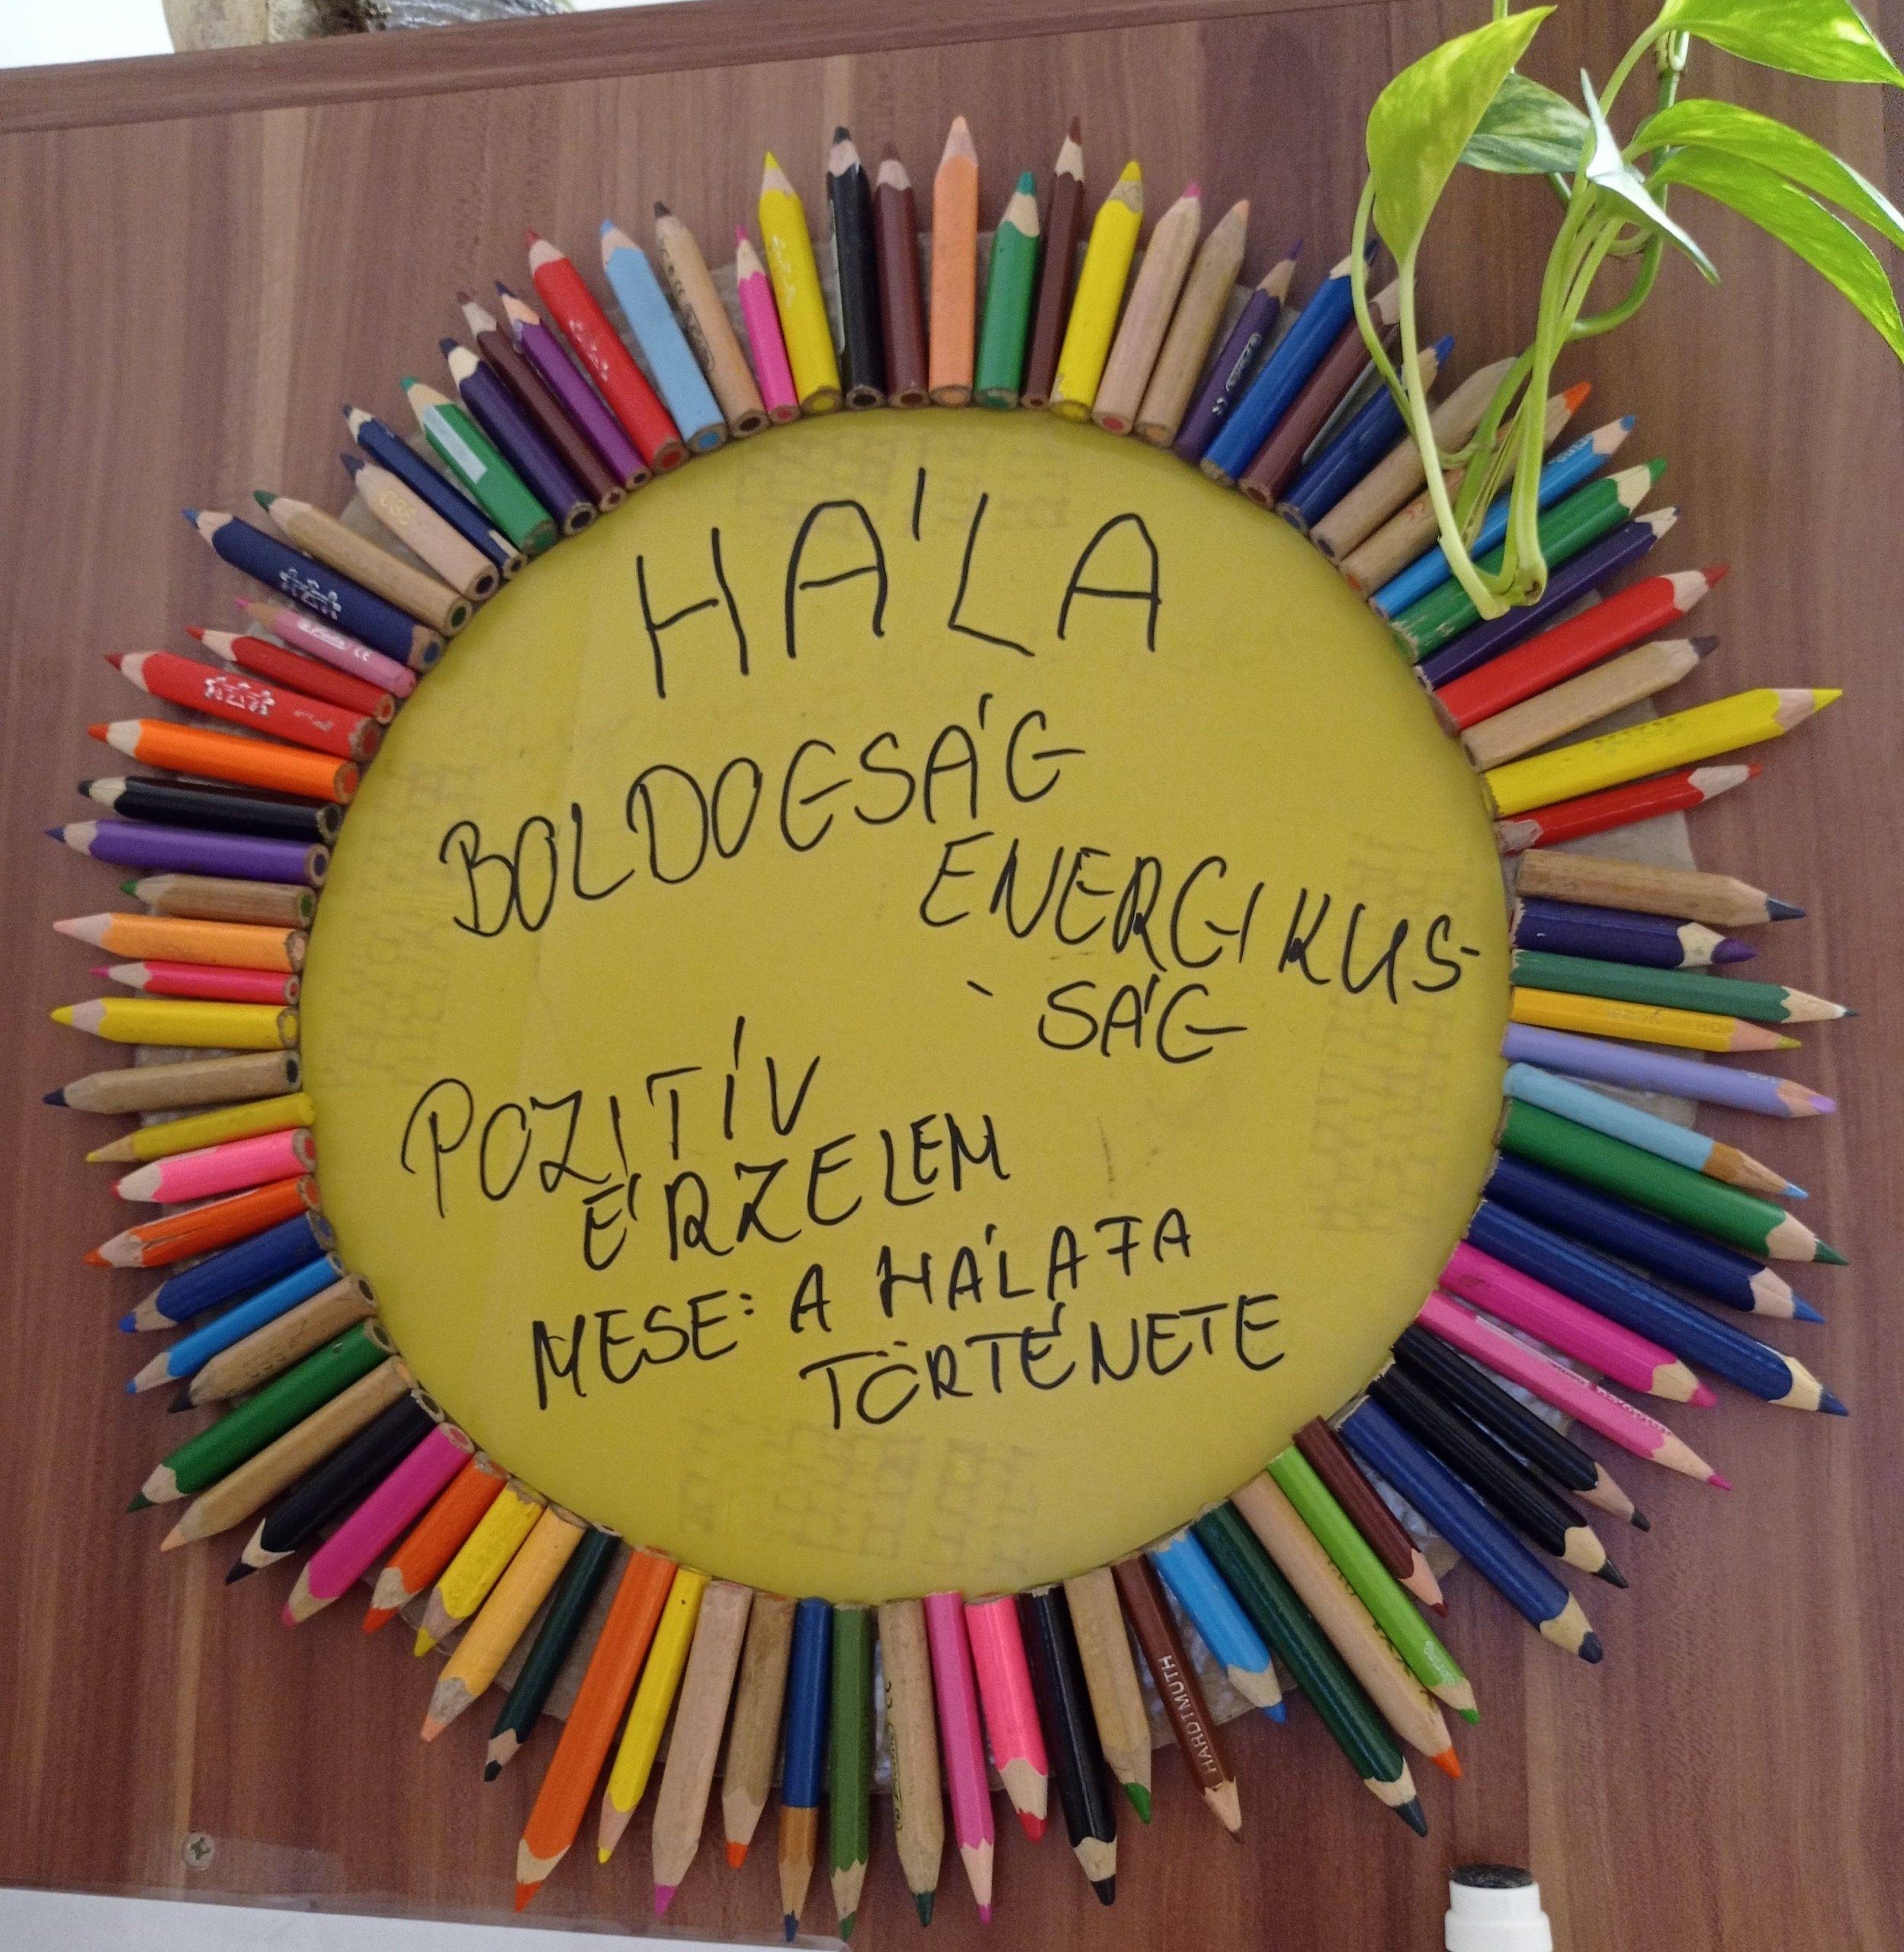 HÁLA
BOLDOGSÁG
ENERGIKUS-
SÁG
POZITÍV
ÉRZELEM
MESE: A HÁLAFA
TÖRTÉNETE
HARDTMUTH